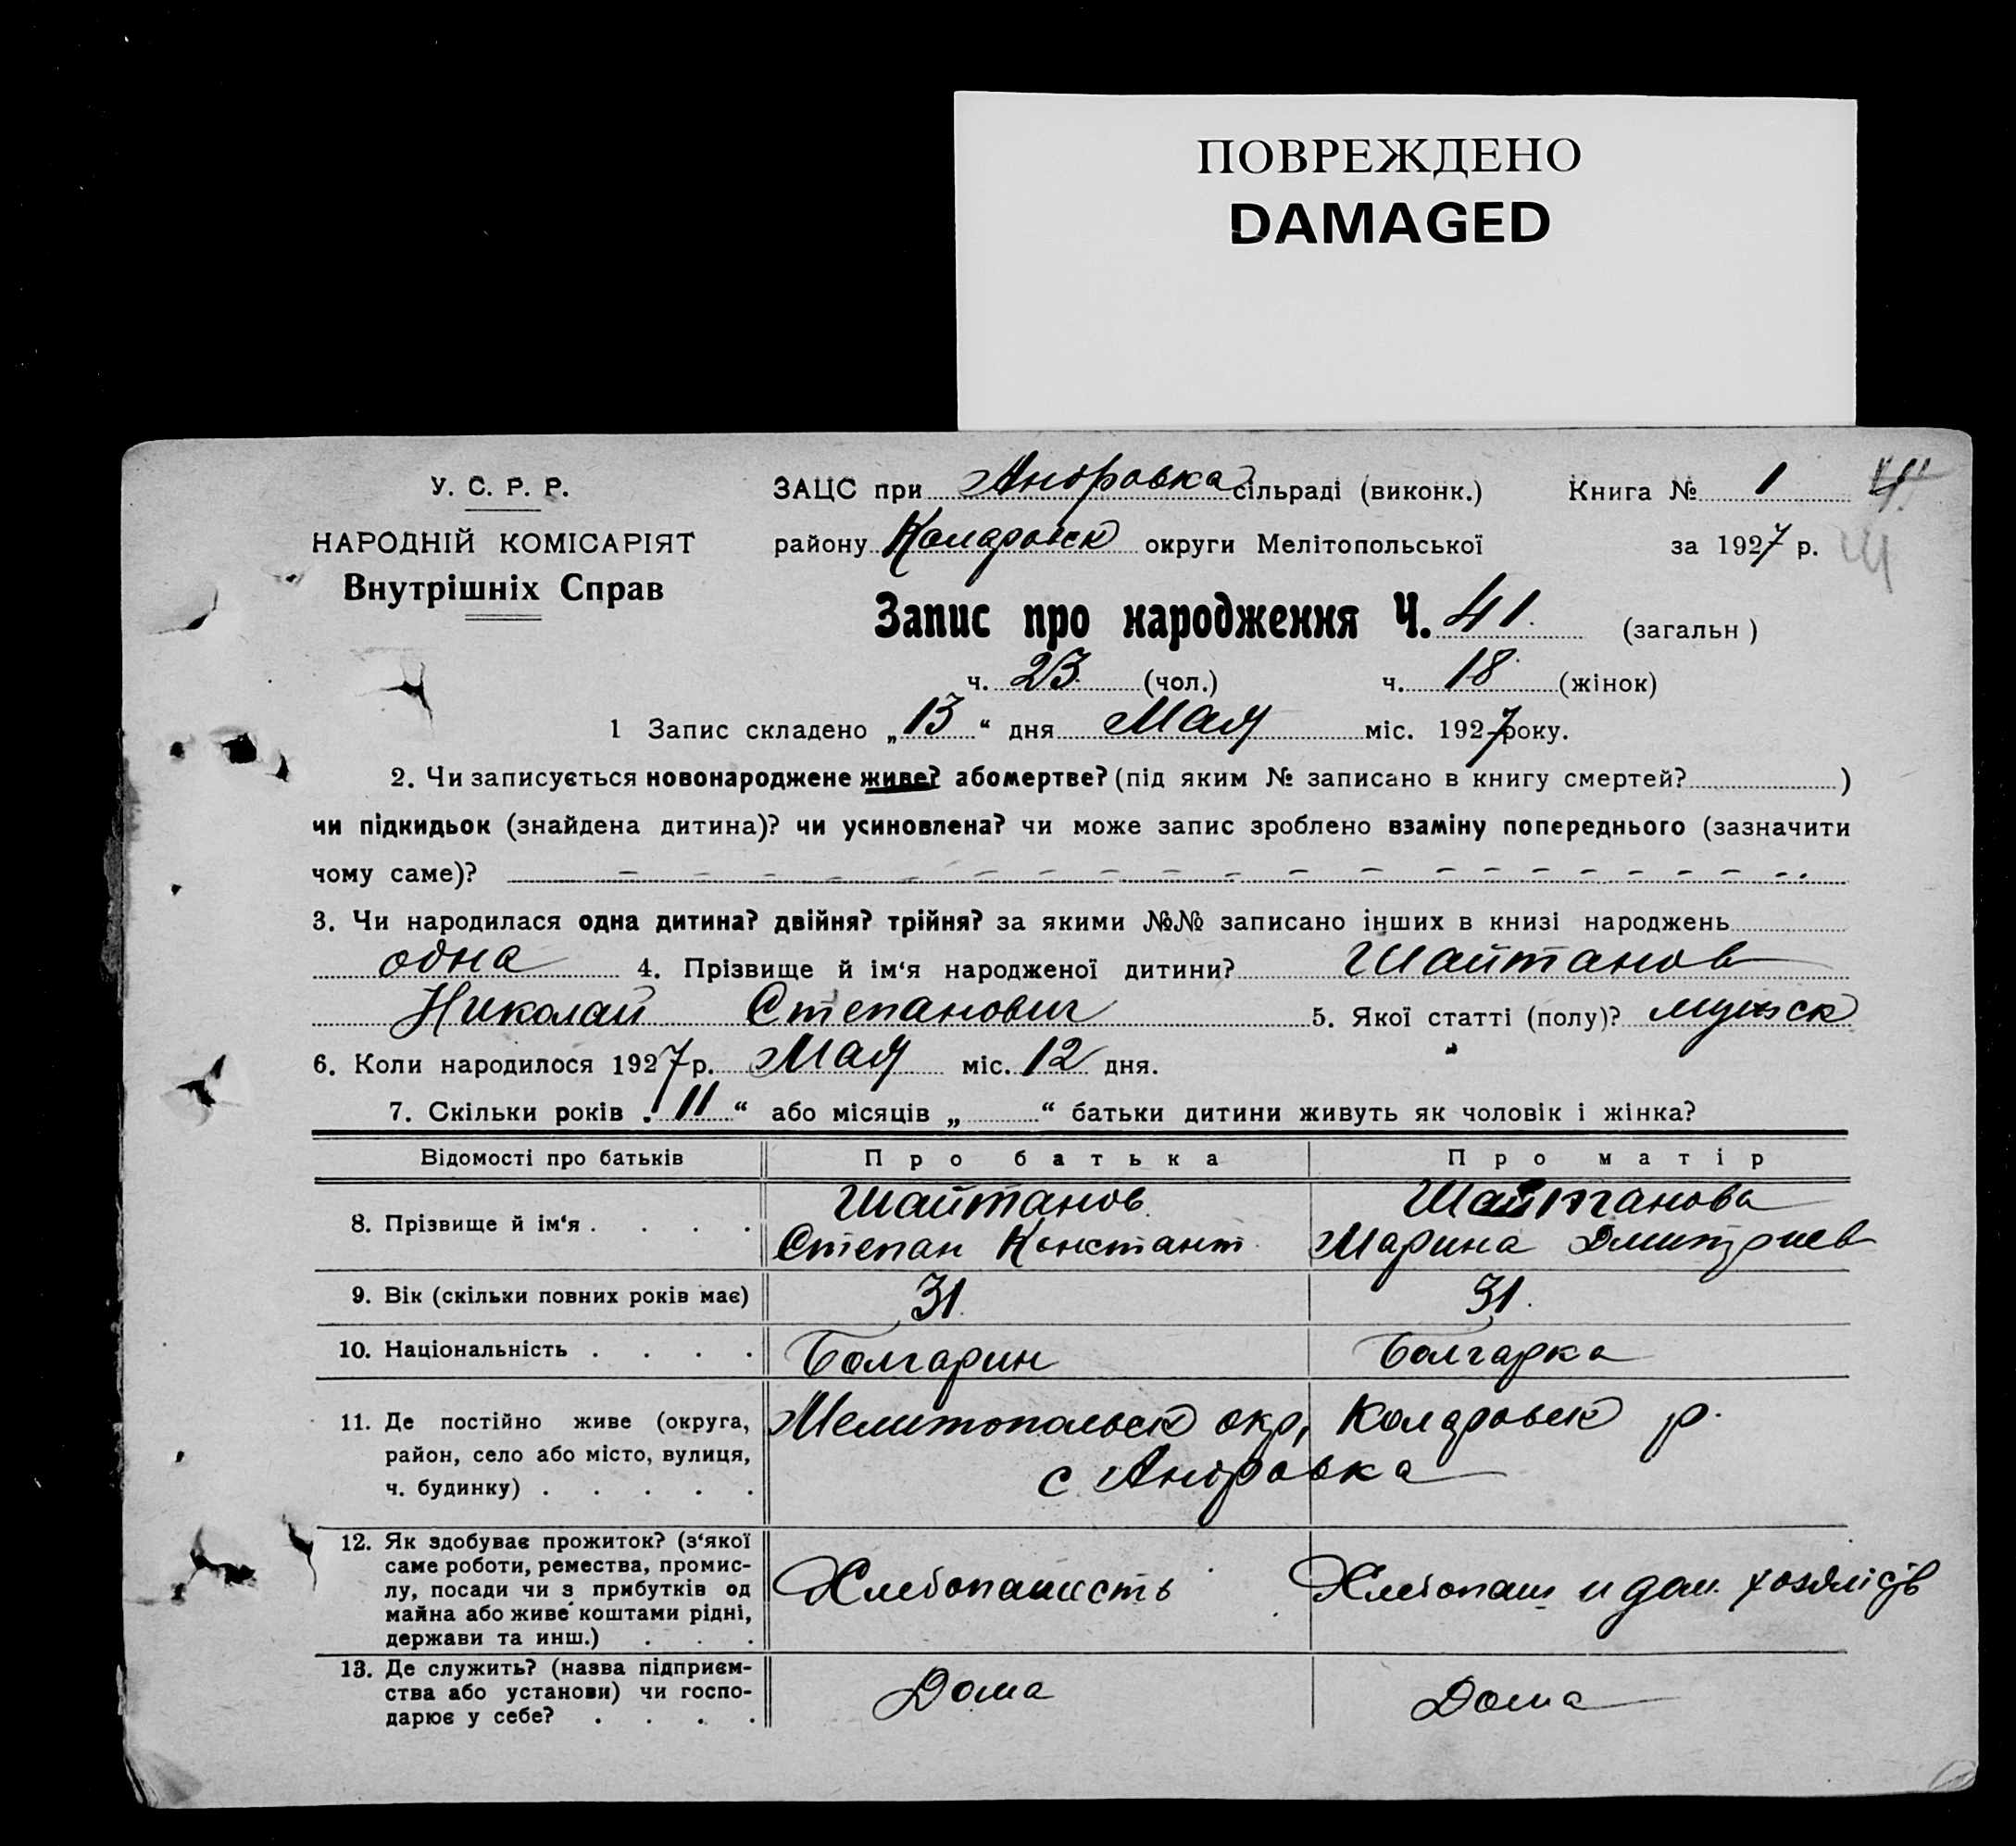 ПОВРЕЖДЕНО
DAMAGED
У. С. Р. Р.
НАРОДНІЙ КОМІСАРІЯТ
Внутрішніх Справ
ЗАЦС при Андровка сільраді (виконк.) Книга № 1
району Коларовск округи Мелітопольської за 1927 р.
Запис про народження Ч. 41. (загальн)
ч. 23. (чол.) ч. 18. (жінок)
1 Запис складено „13“ дня Мая міс. 1927 року.
2. Чи записується новонароджене живе? або мертве? (під яким № записано в книгу смертей? )
чи підкидьок (знайдена дитина)? чи усиновлена? чи може запис зроблено взаміну попереднього (зазначити
чому саме)?
3. Чи народилася одна дитина? двійня? трійня? за якими №№ записано інших в книзі народжень
одна 4. Прізвище й ім‘я народженої дитини? Шайтанов
Николай Степанович 5. Якої статті (полу)? мужск
6. Коли народилося 1927 р. Мая міс. 12 дня.
7. Скільки років „11“ або місяців „ “ батьки дитини живуть як чоловік і жінка?
Відомості про батьків Про батька Про матір
8. Прізвище й ім‘я . . . . Шайтанов Шайтанова
Степан Констант 	Марина Дмитриев
9. Вік (скільки повних років має) 31. 31.
10. Національність . . . . Болгарин Болгарка
11. Де постійно живе (округа, Мелитопольск окр, Коларовск р.
район, село або місто, вулиця, с Андровка
ч. будинку) . . . . .
12. Як здобуває прожиток? (з‘якої
саме роботи, ремества, промис-
лу, посади чи з прибутків од Хлебопашесть Хлебопаш и дом.
майна або живе коштами рідні,
держави та инш.) . . .
13. Де служить? (назва підприєм-
ства або установи) чи госпо- Дома Дома
дарює у себе? . . . .